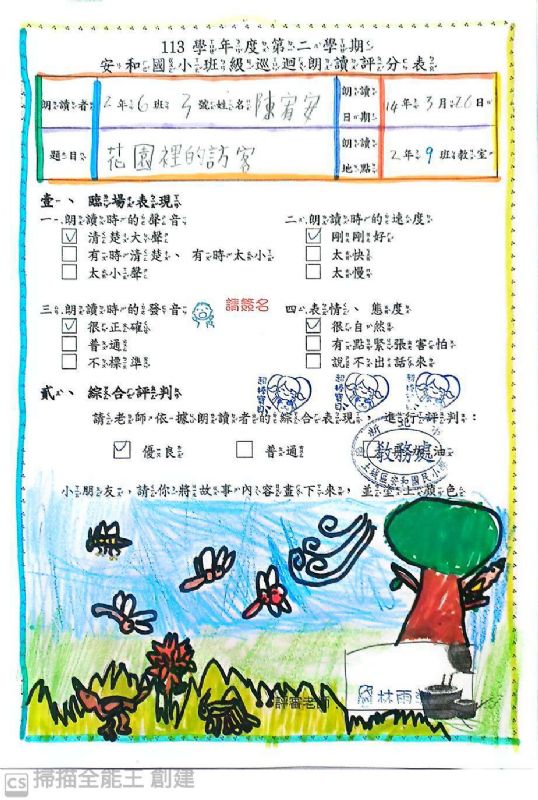 113學年度第二學期
安和國小班級巡迴朗讀評分表
朗讀者 2年6班 3號姓名 陳宥安 朗讀日期 114年3月26日
題目 花園裡的訪客 朗讀地點 2年9班教室
壹、臨場表現
一、朗讀時的聲音 二、朗讀時的速度
清楚大聲 剛剛好
有時清楚、有時太小 太快
太小聲 太慢
三、朗讀時的發音 請簽名 四、表情、態度
很正確 很自然
普通 有點緊張害怕
不標準 說不出話來
貳、綜合評判
請老師依據朗讀者的綜合表現,進行評判:
優良 普通 油
教務處
小朋友,請你將故事內容畫下來,並塗上顏色
評審老師 林雨
CS 掃描全能王 創建